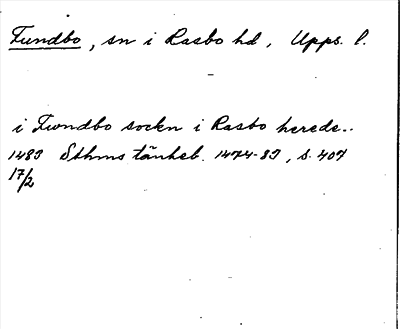 Fundbo, sn i Rasbo hd, Upps. l.
i Fwndbo sockn i Rasbo herede..
1483 Sthms tänkeb. 1474-83, s. 407
17/2